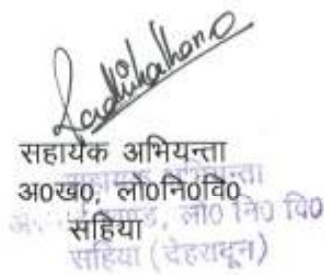 सहायक अभियन्ता
अ०ख०, लो०नि०वि०
सहिया
सहायक अभियन्ता
लो० नि० वि०
सहिया (देहरादून)